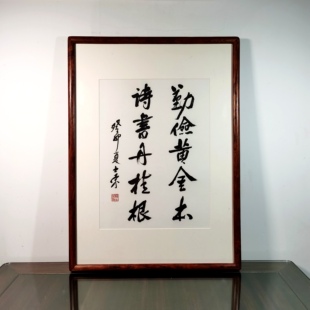 勤俭黄金本
诗书丹桂根
癸卯夏